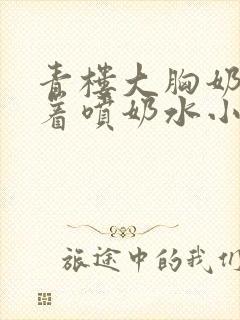 青楼大胸奶
着喷奶水小
旅途中的我们